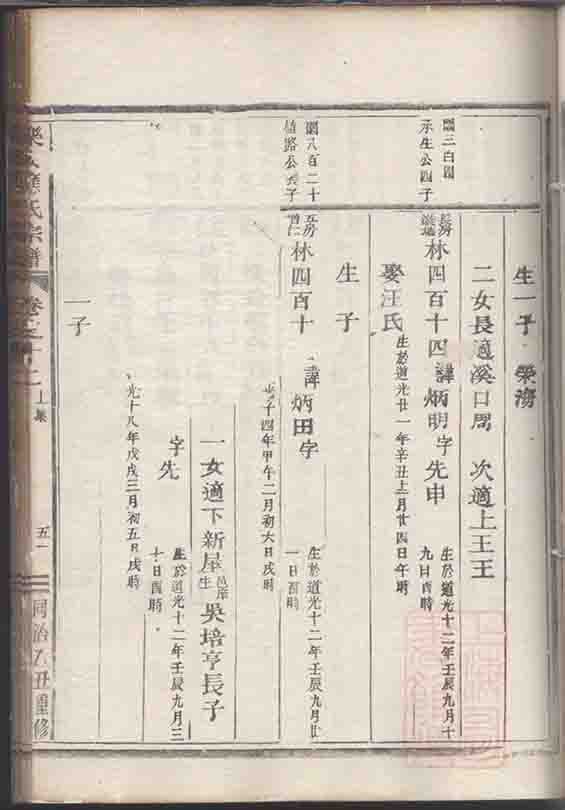 生一子 榮
二女長適溪口周 次適上王王
承生公四子
林四百十四 諱炳明字先申 生於道光十二年壬辰九月十
九日酉時
娶汪氏 生於道光廿一年辛丑上月廿四日午時
生 子
八百二十
路公 子
林四百十 諱炳田字 生於道光十二年壬辰九月廿
一日酉時
子四年甲午二月初六日戌時
一女適下新屋 生吳培亨長子
字先 生於道光十二年壬辰九月三
十日酉時
光十八年戊戌三月初五日戌時
一子
氏宗譜 卷之十二 上集 五一 同治乙丑重修